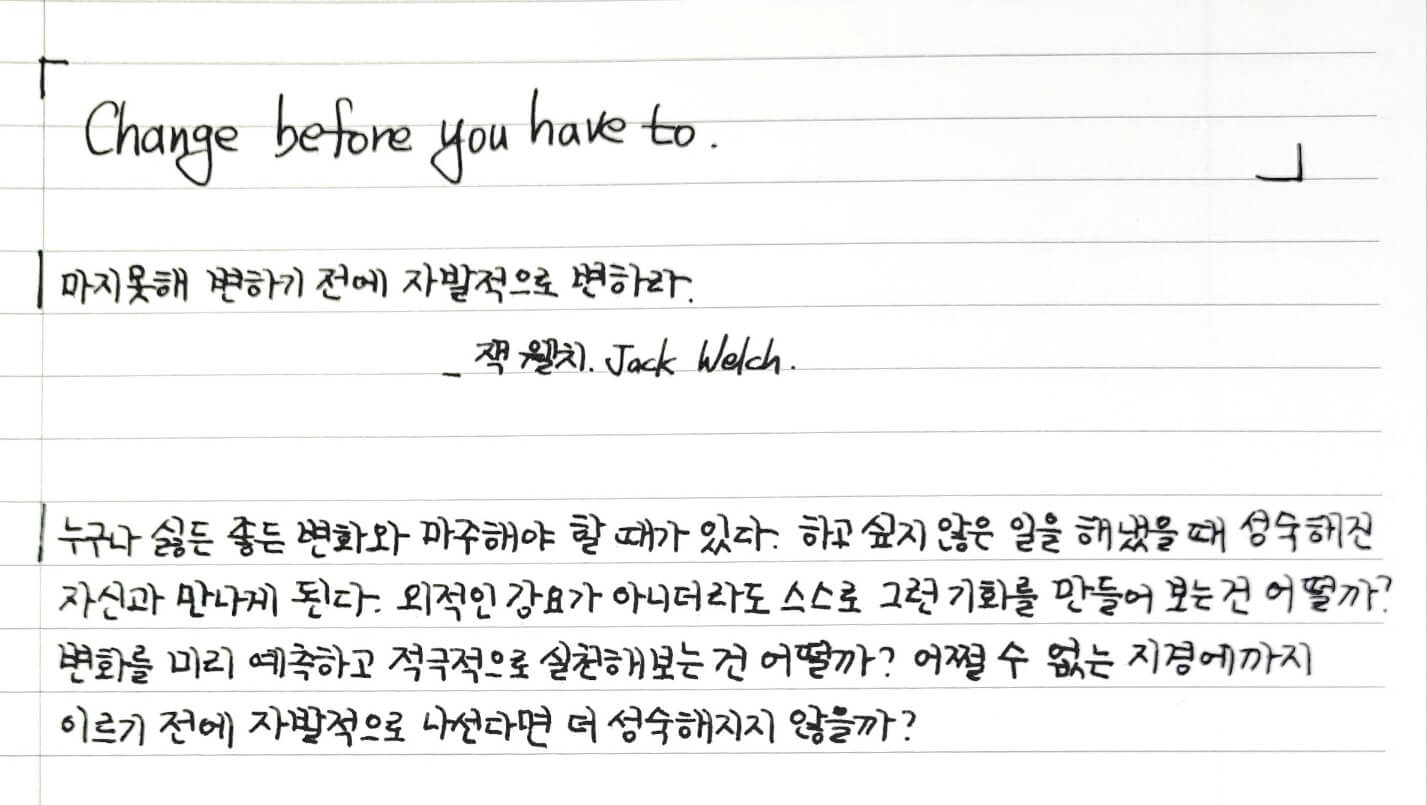 「 Change before you have to. 」
마지못해 변하기 전에 자발적으로 변하라.
_ 잭 웰치. Jack Welch.
누구나 싫든 좋든 변화와 마주해야 할 때가 있다. 하고 싶지 않은 일을 해냈을 때 성숙해진
자신과 만나게 된다. 외적인 강요가 아니더라도 스스로 그런 기화를 만들어 보는 건 어떨까?
변화를 미리 예측하고 적극적으로 실천해보는 건 어떨까? 어쩔 수 없는 지경에까지
이르기 전에 자발적으로 나선다면 더 성숙해지지 않을까?